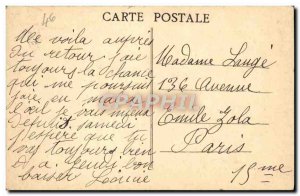 46
CARTE POSTALE
Me voila auprès
du retour j'ai
toujours la chance
qui me poursuit
en
je vais mieux
depuis samedi
J'espère que tu
vas toujours bien
bon
baiser Léonie
Madame Langé
136 Avenue
Emile Zola
Paris
15me